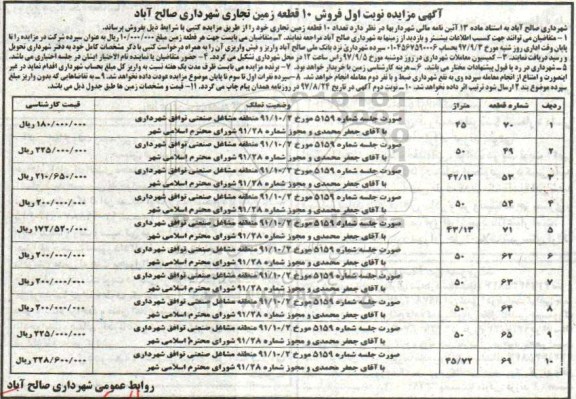 آگهی مزایده نوبت اول فروش ۱۰ قطعه زمین تجاری شهرداری صالح آباد
شهرداری صالح آباد به استناد ماده ۱۳ آئین نامه مالی شهرداریها در نظر دارد تعداد ۱۰ قطعه زمین تجاری خود را از طریق مزایده کتبی با شرایط ذیل بفروش برساند.
۱ - متقاضیان می توانند جهت کسب اطلاعات بیشتر و بازدید از زمینها به شهرداری صالح آباد مراجعه نمایند. ۲- متقاضی می بایست جهت هر قطعه زمین مبلغ ۱۰/۰۰۰/۰۰۰ ریال به عنوان سپرده شرکت در مزایده را تا
پایان وقت اداری روز شنبه مورخ ۹۷/۹/۳ بحساب ۰۱۰۴۵۶۷۵۹۰۰۰۶ سپرده شهرداری نزد بانک ملی صالح آباد واریز و فیش واریزی آن را به همراه درخواست کتبی با ذکر مشخصات کامل خود به دفتر شهرداری تحویل
و رسید دریافت نمایند. ۳- کمیسیون معاملات شهرداری در روز دوشنبه مورخ ۹۷/۹/۵ راس ساعت ۱۳ در محل شهرداری تشکیل می گردد. ۴- حضور متقاضیان یا نماینده تام الاختیار ایشان در جلسه اختیاری می باشد.
۵ - شهرداری در رد یا قبول پیشنهادات مختار می باشد. ۶- هزینه کارشناسی و چاپ آگهی در روزنامه و ثمن با خریدار خواهد بود. ۷- برنده مزایده می بایست ظرف مدت یک هفته نسبت به واریز کل مبلغ بحساب شهرداری اقدام نماید در غیر
اینصورت و امتناع از انجام معامله سپرده وی به نفع شهرداری ضبط و با نفر دوم معامله انجام خواهد شد. ۸- سپرده نفرات اول تا سوم تا پایان موضوع مزایده عودت داده نخواهد شد. ۹- به تقاضاهایی که بدون واریز مبلغ
سپرده موضوع بند ۲ ارسال شود ترتیب اثر داده نخواهد شد. ۱۰- نوبت دوم آگهی در تاریخ ۹۷/۸/۲۲ در روزنامه همدان پیام چاپ می گردد. ۱۱- قیمت و مشخصات زمین ها طبق جدول ذیل می باشد.
ردیف شماره قطعه متراژ وضعیت تملک قیمت کارشناسی
۱ ۷۰ ۴۵ صورت جلسه شماره ۵۱۵۹ مورخ ۹۱/۱۰/۲ منطقه مشاغل صنعتی توافق شهرداری ۱۸۰/۰۰۰/۰۰۰ ریال
با آقای جعفر محمدی و مجوز شماره ۹۱/۲۸ شورای محترم اسلامی شهر
۲ ۴۹ ۵۰ صورت جلسه شماره ۵۱۵۹ مورخ ۹۱/۱۰/۲ منطقه مشاغل صنعتی توافق شهرداری ۲۲۵/۰۰۰/۰۰۰ ریال
با آقای جعفر محمدی و مجوز شماره ۹۱/۲۸ شورای محترم اسلامی شهر
۳ ۵۳ ۴۲/۱۳ صورت جلسه شماره ۵۱۵۹ مورخ ۹۱/۱۰/۲ منطقه مشاغل صنعتی توافق شهرداری ۲۱۰/۶۵۰/۰۰۰ ریال
با آقای جعفر محمدی و مجوز شماره ۹۱/۲۸ شورای محترم اسلامی شهر
۴ ۵۴ ۵۰ صورت جلسه شماره ۵۱۵۹ مورخ ۹۱/۱۰/۲ منطقه مشاغل صنعتی توافق شهرداری ۲۰۰/۰۰۰/۰۰۰ ریال
با آقای جعفر محمدی و مجوز شماره ۹۱/۲۸ شورای محترم اسلامی شهر
۵ ۷۱ ۴۳/۱۳ صورت جلسه شماره ۵۱۵۹ مورخ ۹۱/۱۰/۲ منطقه مشاغل صنعتی توافق شهرداری ۱۷۲/۵۲۰/۰۰۰ ریال
با آقای جعفر محمدی و مجوز شماره ۹۱/۲۸ شورای محترم اسلامی شهر
۶ ۶۲ ۵۰ صورت جلسه شماره ۵۱۵۹ مورخ ۹۱/۱۰/۲ منطقه مشاغل صنعتی توافق شهرداری ۲۰۰/۰۰۰/۰۰۰ ریال
با آقای جعفر محمدی و مجوز شماره ۹۱/۲۸ شورای محترم اسلامی شهر
۷ ۶۳ ۵۰ صورت جلسه شماره ۵۱۵۹ مورخ ۹۱/۱۰/۲ منطقه مشاغل صنعتی توافق شهرداری ۲۰۰/۰۰۰/۰۰۰ ریال
با آقای جعفر محمدی و مجوز شماره ۹۱/۲۸ شورای محترم اسلامی شهر
۸ ۶۴ ۵۰ صورت جلسه شماره ۵۱۵۹ مورخ ۹۱/۱۰/۲ منطقه مشاغل صنعتی توافق شهرداری ۲۰۰/۰۰۰/۰۰۰ ریال
با آقای جعفر محمدی و مجوز شماره ۹۱/۲۸ شورای محترم اسلامی شهر
۹ ۶۵ ۵۰ صورت جلسه شماره ۵۱۵۹ مورخ ۹۱/۱۰/۲ منطقه مشاغل صنعتی توافق شهرداری ۲۲۵/۰۰۰/۰۰۰ ریال
با آقای جعفر محمدی و مجوز شماره ۹۱/۲۸ شورای محترم اسلامی شهر
۱۰ ۶۹ ۴۵/۷۲ صورت جلسه شماره ۵۱۵۹ مورخ ۹۱/۱۰/۲ منطقه مشاغل صنعتی توافق شهرداری ۲۲۸/۶۰۰/۰۰۰ ریال
با آقای جعفر محمدی و مجوز شماره ۹۱/۲۸ شورای محترم اسلامی شهر
روابط عمومی شهرداری صالح آباد